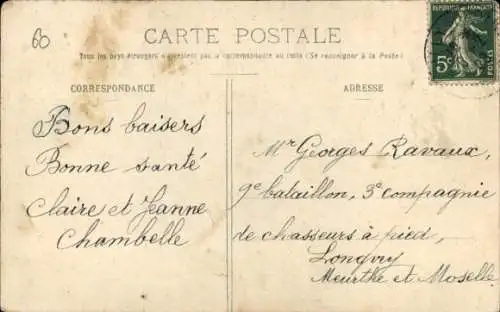 60
CARTE POSTALE
Tous les pays étrangers n'acceptent pas la correspondance au recto (Se renseigner à la Poste)
CORRESPONDANCE
ADRESSE
Bons baisers
Bonne santé
Claire et Jeanne
Chambelle
Mr Georges Ravaux,
9e bataillon, 3e compagnie
de chasseurs à pied,
Longwy
Meurthe et Moselle
REPUBLIQUE FRANÇAISE
5c
POSTES